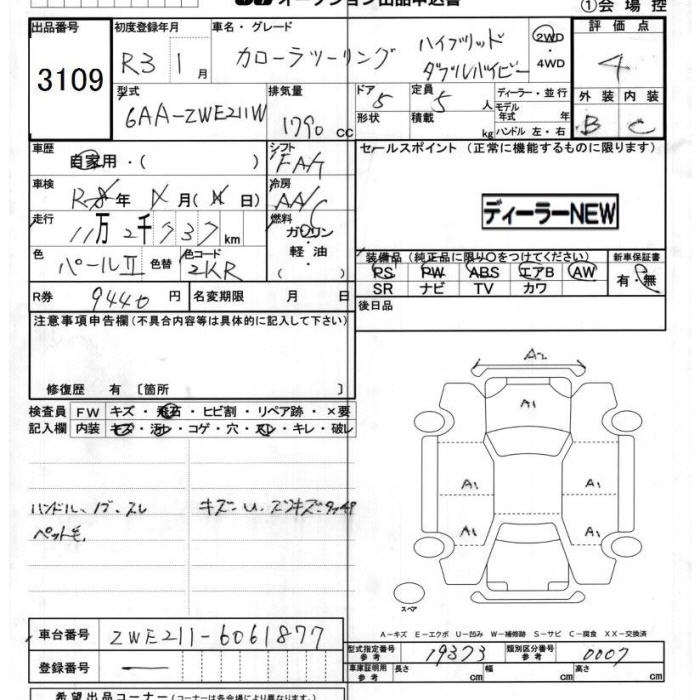 オークション出品申込書
①会場控
出品番号
3109
初度登録年月
R3 1月
車名・グレード
カローラツーリング ハイブリッド ダブルバイビー
2WD・4WD
評価点
4
外装 内装
B C
型式
6AA-ZWE211W
排気量
1790 cc
ドア 5
形状
定員 5 人
積載 kg
ディーラー・並行
モデル年式 年
ハンドル 左・右
車歴
自家用・( )
シフト
FAT
車検
年 月( 日)
冷房
AAC
走行
11万2千737km
燃料
ガソリン
軽・油
( )
色
パールⅡ
色替
色コード
2KR
R券
9440 円
名変期限 月 日
セールスポイント(正常に機能するものに限ります)
ディーラーNEW
装備品(純正品に限り○をつけてください)
PS PW ABS エアB AW
SR ナビ TV カワ
新車保証書
有・無
後日品
注意事項申告欄(不具合内容等は具体的に記入して下さい)
修復歴 有 〔箇所 〕
検査員記入欄
FW キズ・飛石・ヒビ割・リペア跡・×要
内装 キズ・汚レ・コゲ・穴・スレ・キレ・破レ
ハンドル、ノブ、スレ
ペット毛
キズ・U、
A2
A1
A1
A1
A1
A1
スペア
A-キズ E-エクボ U-凹み W-補修跡 S-サビ C-腐食 XX-交換済
車台番号
ZWE211-6061877
登録番号
—
型式指定番号 参考
19373
類別区分番号 参考
0007
車庫証明用 参考
長さ cm
幅 cm
高さ cm
希望出品コーナー(コーナーは各会場により異なります。)